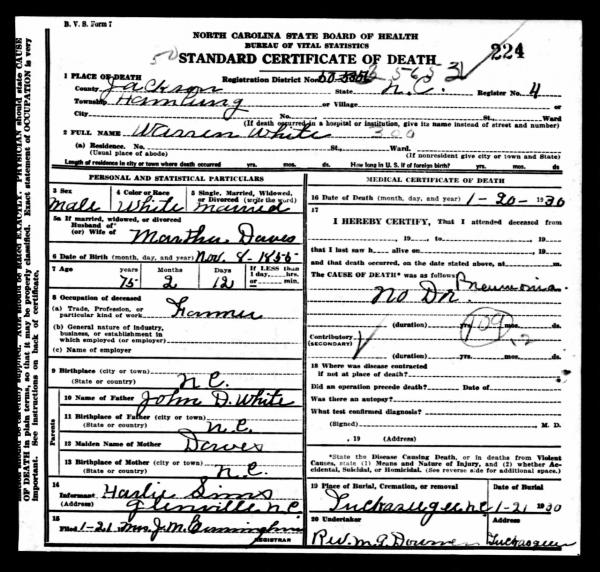 B. V. S. Form 7
NORTH CAROLINA STATE BOARD OF HEALTH
BUREAU OF VITAL STATISTICS
STANDARD CERTIFICATE OF DEATH
224
1 PLACE OF DEATH
Registration District No.
County Jackson State N.C. Register No. 4
Township Hamburg or Village or
City No. St., Ward
(If death occurred in a hospital or institution, give its name instead of street and number)
2 FULL NAME Warren White 300
(a) Residence. No. St., Ward
(Usual place of abode) (If nonresident give city or town and State)
Length of residence in city or town where death occurred yrs. mos. ds. How long in U. S. if of foreign birth? yrs. mos. ds.
PERSONAL AND STATISTICAL PARTICULARS
3 Sex 4 Color or Race 5 Single, Married, Widowed, or Divorced (write the word)
Male White Married
5a If married, widowed, or divorced
Husband of
(or) Wife of Martha Daves
6 Date of Birth (month, day, and year) Nov. 8-1855
7 Age years Months Days If LESS than
1 day,....hrs.
or....min.
75 2 12
8 Occupation of deceased
(a) Trade, Profession, or
particular kind of work Farmer
(b) General nature of industry,
business, or establishment in
which employed (or employer)
(c) Name of employer
9 Birthplace (city or town)
(State or country) N.C.
Parents
10 Name of Father John D. White
11 Birthplace of Father (city or town)
(State or country) N.C.
12 Maiden Name of Mother Daves
13 Birthplace of Mother (city or town)
(State or country) N.C.
14
Informant Harlie Sims
(Address) Glenville N.C.
15
Filed 1-21 Mrs. J. M.
REGISTRAR
MEDICAL CERTIFICATE OF DEATH
16 Date of Death (month, day, and year) 1-20-1930
17
I HEREBY CERTIFY, That I attended deceased from
, 19 , to , 19
that I last saw h alive on , 19
and that death occurred, on the date stated above, at m.
The CAUSE OF DEATH* was as follows: Pneumonia
No Dr.
(duration) yrs. mos. ds.
109
Contributory
(SECONDARY)
(duration) yrs. mos. ds.
18 Where was disease contracted
if not at place of death?
Did an operation precede death? Date of
Was there an autopsy?
What test confirmed diagnosis?
(Signed) M. D.
, 19 (Address)
*State the Disease Causing Death, or in deaths from Violent
Causes, state (1) Means and Nature of Injury, and (2) whether Ac-
cidental, Suicidal, or Homicidal. (See reverse side for additional space.)
19 Place of Burial, Cremation, or removal Date of Burial
Tuckaseegee N.C. 1-21 1930
20 Undertaker Address
Rev. M. A. Tuckaseegee
PHYSICIAN should state CAUSE
Exact statement of OCCUPATION is very
OF DEATH in plain terms, so that it may be properly classified.
important. See instructions on back of certificate.